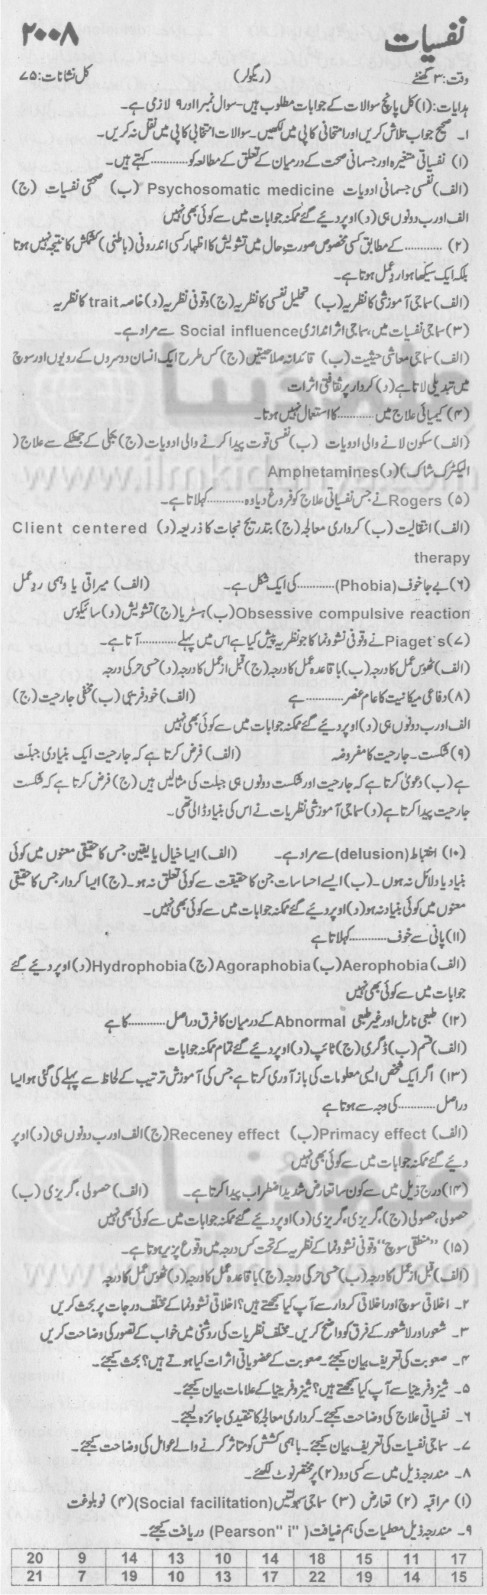 نفسیات ۲۰۰۸
وقت: ۳ گھنٹے (ریگولر) کل نشانات: ۷۵
ہدایات: (۱) کل پانچ سوالات کے جوابات مطلوب ہیں۔ سوال نمبر ا اور ۹ لازمی ہے۔
۱۔ صحیح جواب تلاش کریں اور امتحانی کاپی میں لکھیں۔ سوالات امتحانی کاپی میں نقل نہ کریں۔
(۱) نفسیاتی متغیرہ اور جسمانی صحت کے درمیان کے تعلق کے مطالعہ کو............ کہتے ہیں۔
(الف) نفسی جسمانی ادویات Psychosomatic medicine (ب) صحتی نفسیات (ج)
الف اور ب دونوں ہی (د) اوپر دیئے گئے ممکنہ جوابات میں سے کوئی بھی نہیں
(۲) ............ کے مطابق کسی مخصوص صورت حال میں تشویش کا اظہار کسی اندرونی (باطنی) کشمکش کا نتیجہ نہیں ہوتا
بلکہ ایک سیکھا ہوا ردِ عمل ہوتا ہے۔
(الف) سماجی آموزشی کا نظریہ (ب) تحلیل نفسی کا نظریہ (ج) وقوفی نظریہ (د) خاصہ trait کا نظریہ
(۳) سماجی نفسیات میں، سماجی اثر اندازی Social influence سے مراد ہے۔
(الف) سماجی معاشی حیثیت (ب) قائدانہ صلاحیتیں (ج) کس طرح ایک انسان دوسروں کے رویوں اور سوچ
میں تبدیلی لاتا ہے (د) کردار پر ثقافتی اثرات
(۴) کیمیائی علاج میں............ کا استعمال نہیں ہوتا۔
(الف) سکون لانے والی ادویات (ب) نفسی قوت پیدا کرنے والی ادویات (ج) بجلی کے جھٹکے سے علاج (
الیکٹرک شاک) (د) Amphetamines
(۵) Rogers نے جس نفسیاتی علاج کو فروغ دیا وہ............ کہلاتا ہے۔
(الف) انتقالیت (ب) کرداری معالجہ (ج) بتدریج نجات کا ذریعہ (د) Client centered
therapy
(۶) بے جا خوف (Phobia)............ کی ایک شکل ہے۔ (الف) میراتی یا وہمی ردِ عمل
Obsessive compulsive reaction (ب) ہسٹریا (ج) تشویش (د) سائیکوس
(۷) Piaget`s نے وقوفی نشوونما کا جو نظریہ پیش کیا ہے اس میں پہلے............ آتا ہے۔
(الف) ٹھوس عمل کا درجہ (ب) باقاعدہ عمل کا درجہ (ج) قبل از عمل کا درجہ (د) حسی حرکی درجہ
(۸) دفاعی میکانیت کا عام عنصر............ ہے (الف) خود فریبی (ب) مخفی جارحیت (ج)
الف اور ب دونوں ہی (د) اوپر دیئے گئے ممکنہ جوابات میں سے کوئی بھی نہیں
(۹) شکست۔ جارحیت کا مفروضہ (الف) فرض کرتا ہے کہ جارحیت ایک بنیادی جبلت
ہے (ب) دعویٰ کرتا ہے کہ جارحیت اور شکست دونوں ہی جبلت کی مثالیں ہیں (ج) فرض کرتا ہے کہ شکست
جارحیت پیدا کرتا ہے (د) سماجی آموزشی نظریات نے اس کی بنیاد ڈالی تھی۔
(۱۰) اختباط (delusion) سے مراد ہے۔ (الف) ایسا خیال یا یقین جس کا حقیقی معنوں میں کوئی
بنیاد یا دلائل نہ ہوں۔ (ب) ایسے احساسات جن کا حقیقت سے کوئی تعلق نہ ہو۔ (ج) ایسا کردار جس کا حقیقی
معنوں میں کوئی بنیاد نہ ہو (د) اوپر دیئے گئے ممکنہ جوابات میں سے کوئی بھی نہیں۔
(۱۱) پانی سے خوف............ کہلاتا ہے
(الف) Aerophobia (ب) Agoraphobia (ج) Hydrophobia (د) اوپر دیئے گئے
جوابات میں سے کوئی بھی نہیں
(۱۲) طبعی نارمل اور غیر طبعی Abnormal کے درمیان کا فرق دراصل............ کا ہے
(الف) قسم (ب) ڈگری (ج) ٹائپ (د) اوپر دیئے گئے تمام ممکنہ جوابات
(۱۳) اگر ایک شخص ایسی معلومات کی باز آوری کرتا ہے جس کی آموزش ترتیب کے لحاظ سے پہلے کی گئی ہو ایسا
دراصل............ کی وجہ سے ہوتا ہے
(الف) Primacy effect (ب) Receney effect (ج) الف اور ب دونوں ہی (د) اوپر
دیئے گئے ممکنہ جوابات میں سے کوئی بھی نہیں
(۱۴) درج ذیل میں سے کون سا تعارض شدید اضطراب پیدا کرتا ہے۔ (الف) حصولی، گریزی (ب)
حصولی، حصولی (ج) گریزی، گریزی (د) اوپر دیئے گئے ممکنہ جوابات میں سے کوئی بھی نہیں
(۱۵) "منطقی سوچ" وقوفی نشوونما کے نظریہ کے تحت کس درجہ میں وقوع پزیر ہوتا ہے۔
(الف) قبل از عمل کا درجہ (ب) حسی حرکی درجہ (ج) باقاعدہ عمل کا درجہ (د) ٹھوس عمل کا درجہ
۲۔ اخلاقی سوچ اور اخلاقی کردار سے آپ کیا سمجھتے ہیں؟ اخلاقی نشوونما کے مختلف درجات پر بحث کریں
۳۔ شعور اور لاشعور کے فرق کو واضح کریں۔ مختلف نظریات کی روشنی میں خواب کے تصور کی وضاحت کریں
۴۔ صعوبت کی تعریف بیان کیجئے۔ صعوبت کے عضویاتی اثرات کیا ہوتے ہیں؟ بحث کیجئے۔
۵۔ شیزوفرینیا سے آپ کیا سمجھتے ہیں؟ شیزوفرینیا کے علامات بیان کیجئے۔
۶۔ نفسیاتی علاج کی وضاحت کیجئے۔ کرداری معالجہ کا تنقیدی جائزہ لیجئے۔
۷۔ سماجی نفسیات کی تعریف بیان کیجئے۔ باہمی کشش کو متاثر کرنے والے عوامل کی وضاحت کیجئے۔
۸۔ مندرجہ ذیل میں سے کسی دو (۲) پر مختصر نوٹ لکھئے۔
(۱) مراقبہ (۲) تعارض (۳) سماجی سہولتیں (Social facilitation) (۴) نوبلوغت
۹۔ مندرجہ ذیل معطیات کی ہم ضیافت (Pearson" i") دریافت کیجئے۔
20 9 14 13 10 14 18 15 11 17
21 7 19 10 13 17 22 19 14 15